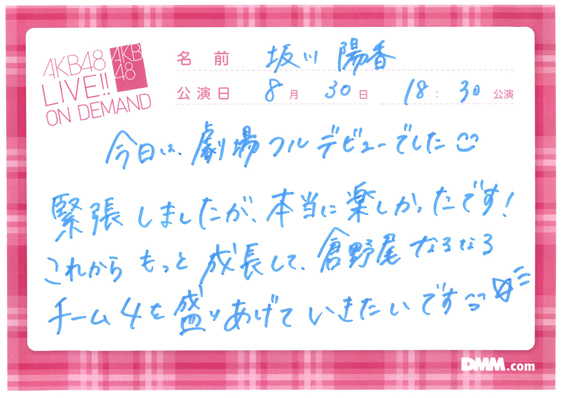 AKB48
LIVE!!
ON DEMAND
AKB
48
名前 坂川 陽香
公演日 8月 30日 18:30 公演
今日は、劇場フルデビューでした
緊張しましたが、本当に楽しかったです!
これからもっと成長して、倉野尾なるなる
チーム4を盛りあげていきたいです
DMM.com